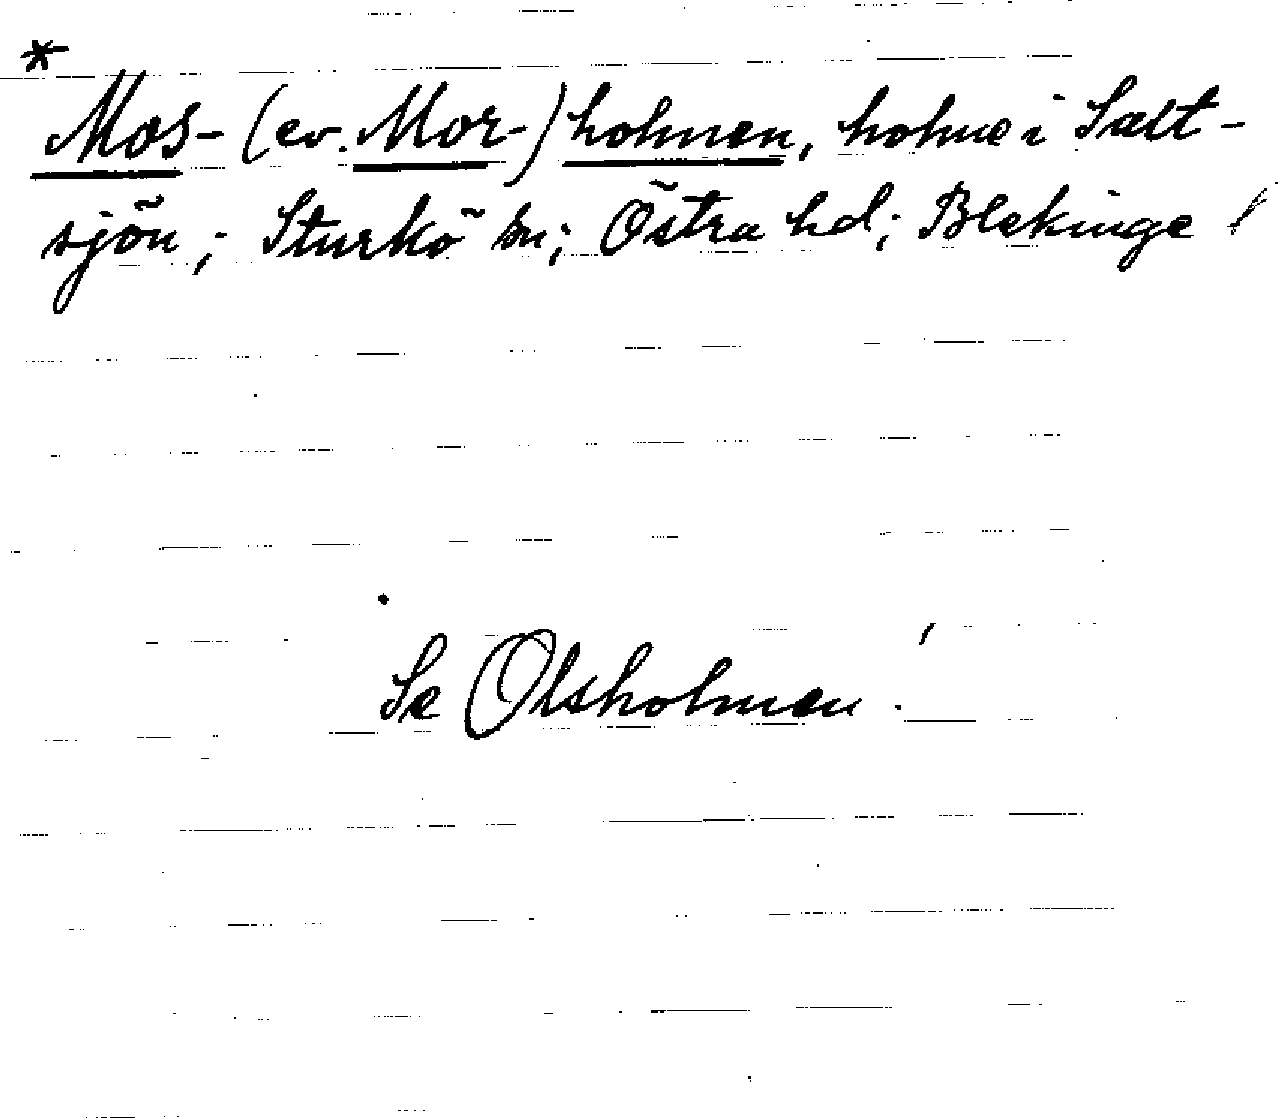 *
Mos- (ev. Mor-) holmen, holme i Salt-
sjön; Sturkö sn; Östra hd; Blekinge l
Se Olsholmen.